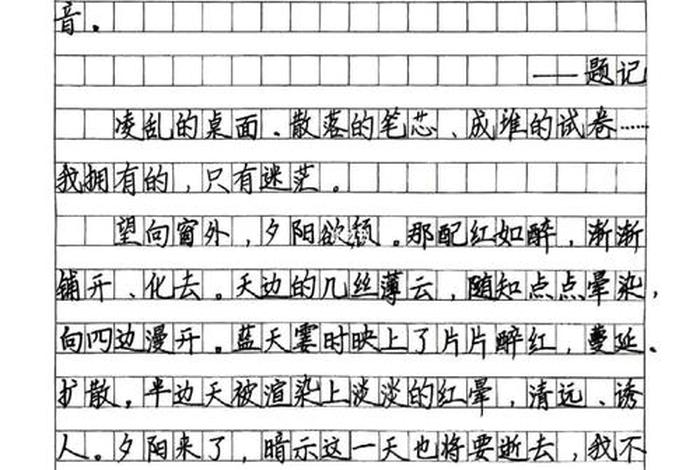 音。
——题记
凌乱的桌面、散落的笔芯、成堆的试卷……
我拥有的，只有迷茫。
望向窗外，夕阳欲颓。那酡红如醉，渐渐
铺开、化去。天边的几丝薄云，随知点点晕染，
向四边漫开。蓝天霎时映上了片片醉红，蔓延、
扩散。半边天被渲染上淡淡的红晕，清远、诱
人。夕阳来了，暗示这一天也将要逝去，我不